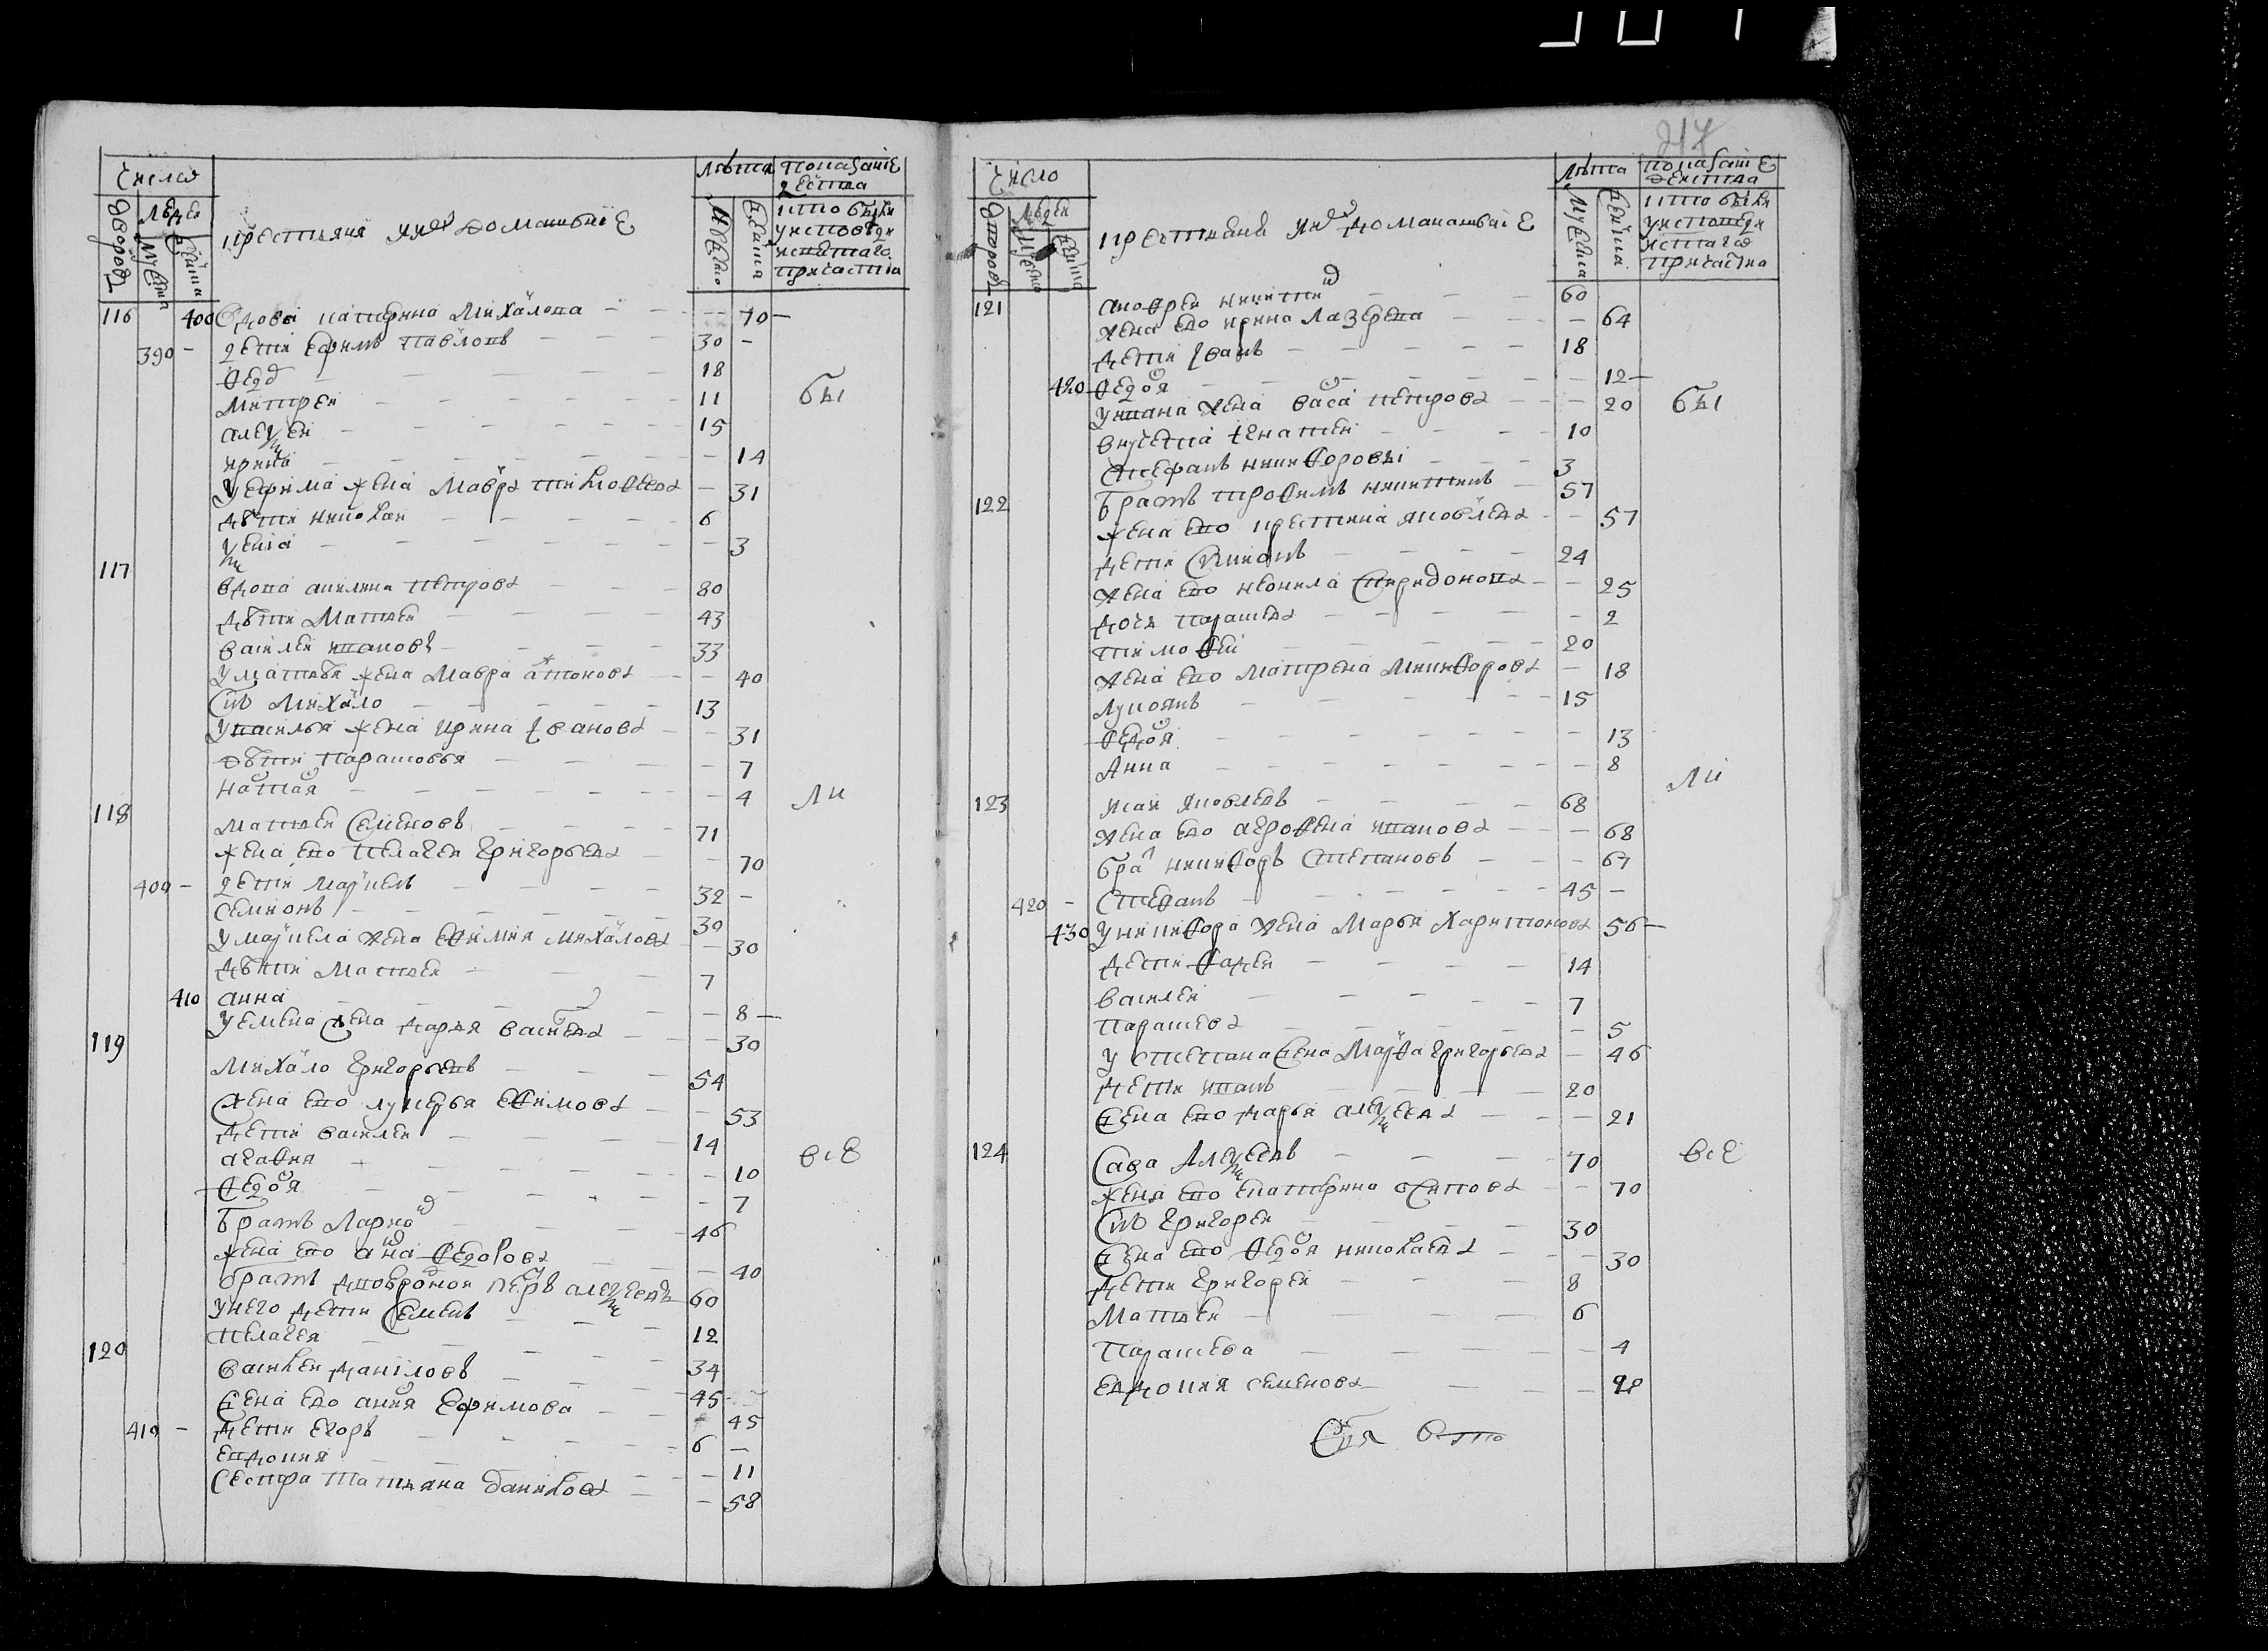 217
Число
дворовъ
людей
мужеска
женска
крестьяня ихъ домашъние
Лѣта
мужеска
женска
показание
действа
кто были
у исповѣди
и святаго
причастиа
116 400 вдова катирина Михалова 70
390 дети Ефимъ Павловъ 30
Федо 18
Митрей 11
алексей 15
ирина 14
у ефима жена Мавра тимофеева 31
дѣти николаи 6
3
117
вдова акилина петрова 80
дѣти Матвеи 43
василеи ивановъ 33
у матвѣя жена Мавра антонова 40
сынъ Михаило 13
у василья жена ирина иванова 31
дѣти Парасковья 7
настася 4
118
матвеи Семеновъ 71
жена ево Пелагея григорьева 70
400 дети маркелъ 32
семионъ 30
у маркела жена ефимия михалова 30
дѣти Матвеи 7
410 анна 8
жена дарья васильева 30
119
Михаило Григорьевъ 54
жена ево лукерья ефимова 53
дети василеи 14
агафия 10
федося 7
братъ Ларион 46
жена ево анна федорова 40
братъ двоюродной петръ алексеевъ 60
у него дети Семенъ 12
пелагея
120
василеи даниловъ 34
жена ево анна Ефимова 45
45
410 дети егоръ 6
евдокия 11
сестра татьяна данилова 58
бы
ли
все
Число
дворовъ
людей
мужеска
женска
крестьяня ихъ домашъние
Лѣта
мужеска
женска
показание
действа
кто были
у исповеди
и святаго
причастиа
121 андреи никитин 60
жена ево ирина Лазарева 64
дети иванъ 18
420 федося 12
у ивана жена васа петрова 20
внучета игнатеи 10
стефанъ никифоровы 3
122 братъ трофимъ никитинъ 57
жена ево кристина яковлева 57
дети Спиионъ 24
жена ево неонила Спиридонова 25
дочь парасква 2
тимофеи 20
жена ево матрена Никифорова 18
лукоянъ 15
федося 13
Анна 8
123 исаи яковлевъ 68
жена ево агрофена иванова 68
брат никифоръ степановъ 67
420 степанъ 45
430 у никифора жена Марья Харитонова 56
дети фадеи 14
василеи 7
Параскева 5
у степана жена Марфа григорьева 46
дети иванъ 20
жена ево дарья алексеева 21
124 Сава Алексеевъ 70
жена ево екатирина осипова 70
сынъ григореи 30
жена ево федося николаева 30
дети григореи 8
Матвеи 6
Параскева 4
евдокия семенова 90
бы
ли
все